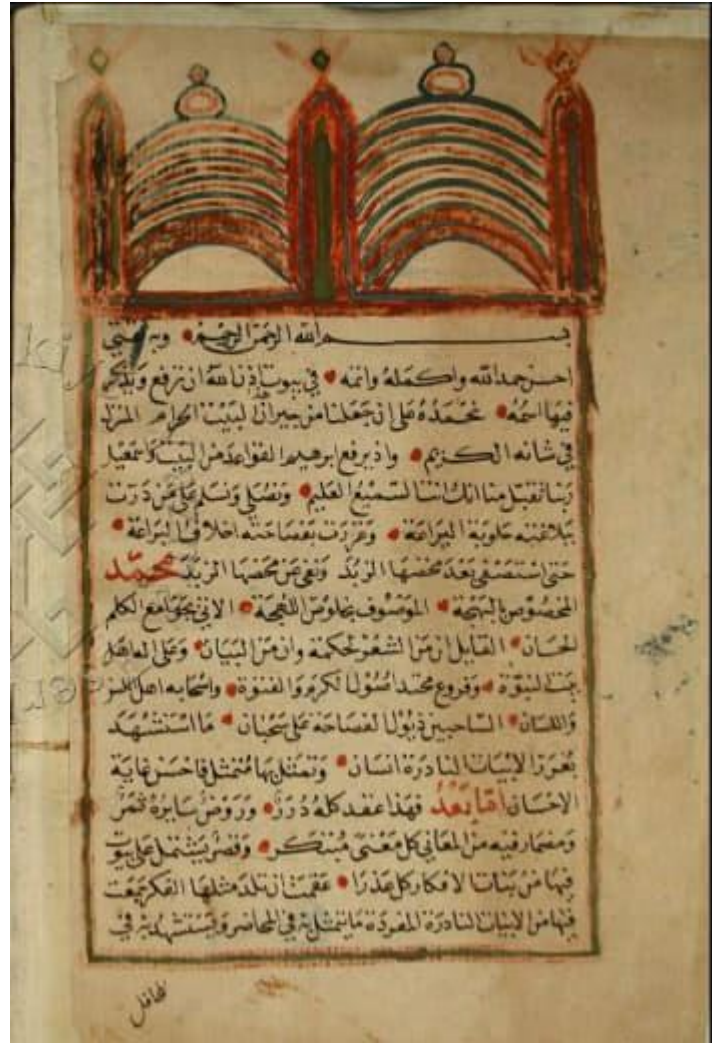 بسم الله الرحمن الرحيم وبه ثقتي
احسن حمد الله واكمله واتمه في بيوت اذن الله ان ترفع ويذكر
فيها اسمه نحمده على ان جعلنا من جيران البيت الحرام المنزل
في شانه الكريم واذ يرفع ابرهيم القواعد من البيت واسمعيل
ربنا تقبل منا انك انت السميع العليم ونصلي ونسلم على من درت
ببلاغته حلوبة البراعة وغزرت بفصاحته اخلاف البراعة
حتى استصفى بعد مخضها الزبد ونفى عن محضها الزبد محمد
المخصوص بالبهجة الموصوف بخلوص اللهجة الاتي بجوامع الكلم
الحسان القايل ان من الشعر لحكمة وان من البيان وعلى اله اهل
بيت النبوة وفروع محتد اصول الكرم والفتوة واصحابه اهل اللسن
واللسان الساحبين ذيول الفصاحة على سحبان ما استشهد
بغرر الابيات النادرة انسان وتمثل بها متمثل فاحسن غاية
الاحسان اما بعد فهذا عقد كله درر وروض سايره ثمر
ومضمار فيه من المعاني كل معنى مبتكر وقصر يشتمل على بيوت
فيها من بنات الافكار كل عذرا عقمت ان تلد مثلها الفكر جمعت
فيها من الابيات النادرة المفردة ما يتمثل به في المحاضر ويستشهد به في
المحافل